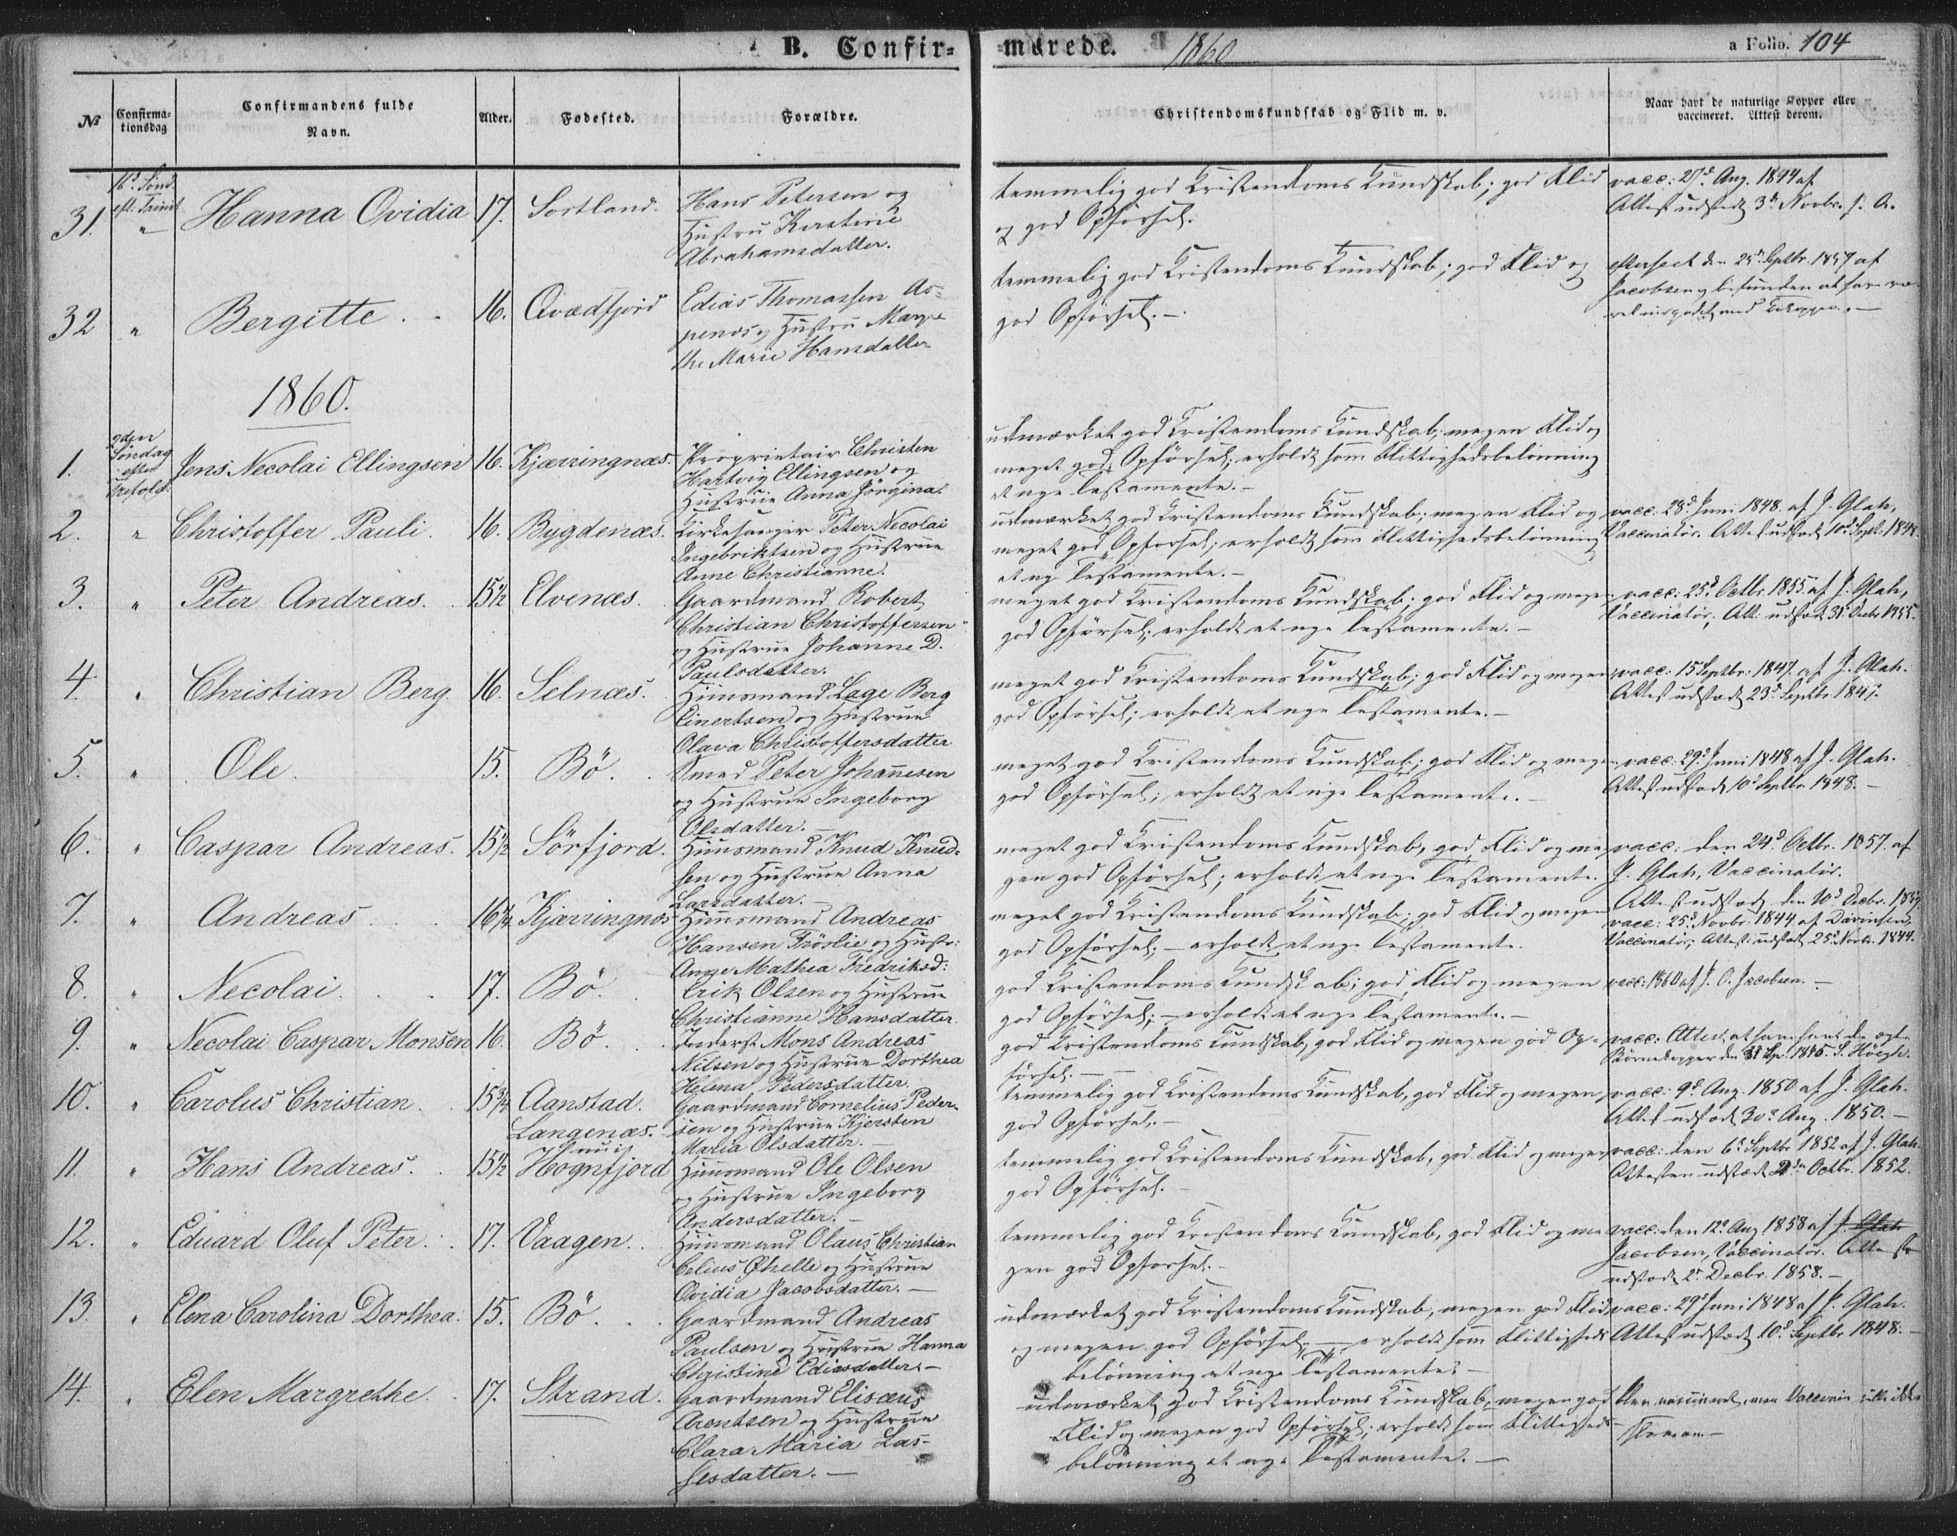 B. Confir=
marede. 1860
a Folio. 104
№
Confirma-
tionsdag
Confirmandens fulde
Navn.
Alder.
Fødested.
Forældre.
Christendomskundskab og Flid m. v.
Naar havt de naturlige Kopper eller
vaccineret. Attest derom.
16d Sønd.
eft. Trinit.
31. " Hanna Ovidia 17. Sortland.
Hans Petersen og
Hustru Kerstine
Abrahamsdatter.
temmelig god Kristendoms Kundskab; god Flid
og god Opförsel.
vacc: 27d Aug. 1844 af
Attest udstedt 3d Novbr. s. A.
32 " Bergitte 16. Qvædfjord
Edias Thomassen As-
penæs og Hustru Margre-
the Marie Hansdatter
temmelig god Kristendoms Kundskab; god Flid og
god Opförsel. -
efterseet den 25d Septbr. 1857 af
Jacobsen og befunden at have
1860.
Søndag
efter
1. Jens Necolai Ellingsen 16. Kjærringnæs.
Proprietair Christen
Hartvig Ellingsen og
Hustrue Anna Jörgina.
udmærket god Kristendoms Kundskab; megen Flid og
meget god Opförsel; erholdt som Flittighedsbelönning
et nye Testamente. -
2. " Christoffer Pauli. 16. Bygdenæs.
Kirkesanger Peter Necolai
Ingebriktsen og Hustrue
Anne Christianne.
udmærket god Kristendoms Kundskab; megen Flid og
meget god Opförsel; erholdt som Flittighedsbelönning
et ny Testamente. -
vacc: 28d Juni 1848. af J. Glah,
Vaccinatör. Attest udstedt 10d Sept. 1848
3. " Peter Andreas. 15½ Elvenæs.
Gaardmand Robert
Christian Christoffersen
og Hustrue Johanne D.
Paulsdatter.
meget god Kristendoms Kundskab; god Flid og megen
god Opförsel; erholdt et nye Testamente. -
vacc: 25d Octbr. 1855. af J. Glah,
Vaccinatör; Att: udstedt 31 Decbr 1855.
4. " Christian Berg 16. Selnæs.
Huusmand Lage Berg
Einertsen og Hustrue
Olava Christoffersdatter
meget god Kristendoms Kundskab; god Flid og megen
god Opförsel; erholdt et nye Testamente. -
vacc: 15 Septbr. 1847. af J. Glah.
Attest udstedt 23d Septbr. 1847.
5. " Ole. 15. Bö.
Smed Peter Johannesen
og Hustrue Ingeborg
Olsdatter. -
meget god Kristendoms Kundskab; god Flid og megen
god Opförsel; erholdt et nye Testamente. -
vacc: 29d Juni 1848 af J. Glah.
Attest udstedt 10d Septbr. 1848. -
6. " Caspar Andreas. 15½ Sörfjord.
Huusmand Knud Knud-
sen og Hustrue Anna
Larsdatter. -
meget god Kristendoms Kundskab, god Flid og me-
gen god Opförsel; erholdt et nye Testamente.
vacc: den 24d Octbr. 1857. af
J. Glah, Vaccinatör.
Attest udstedt den 10d Decbr. 1857
7. " Andreas 16¼ Kjærringnæs
Huusmand Andreas
Hansen Frörlie og Hustr:
Anne Mathea Fredriksd:
meget god Kristendoms Kundskab; god Flid og megen
god Opförsel; - erholdt et nye Testamente.
vacc: 25d Novbr. 1844 af Davinsen,
Vaccinatör; Attest udstedt 25d Novbr. 1844.
8. " Necolai. 17. Bö.
Erik Olsen og Hustrue
Christianne Hansdatter.
god Kristendoms Kundskab; god Flid og megen
god Opförsel; - erholdt et nye Testamente. -
vacc: 1860 af J. O. Jacobsen. -
9. " Necolai Caspar Monsen 16. Bö.
Inderst Mons Andreas
Nilsen og Hustrue Dorthea
Helena Pedersdatter.
god Kristendoms Kundskab, god Flid og megen god Op-
försel. -
vacc: Attest, at have havt de ægte
Börnekopper den 1845. S. Höegh.
10. " Carolus Christian. 15¾ Aanstad.
Langenæs.
Gaardmand Cornelius Peder-
sen og Hustrue Kjersten
Maria Olsdatter. -
temmelig god Kristendoms Kundskab, god Flid og megen
god Opförsel. -
vacc: 9d Aug. 1850 af J. Glah.
Attest udstedt 30d Aug. 1850. -
11. " Hans Andreas. 15½ Hognfjord
Huusmand Ole Olsen
og Hustrue Ingeborg
Andersdatter. -
temmelig god Kristendoms Kundskab, god Flid og megen
god Opförsel.
vacc: den 6d Septbr 1852 af J. Glah.
Attesten udstedt 2den Octbr. 1852.
12. " Eduard Oluf Peter. 17. Vaagen.
Huusmand Olaus Christian
Celius Qvelle og Hustrue
Ovidia Jacobsdatter. -
temmelig god Kristendoms Kundskab, god Flid og me-
gen god Opförsel. -
vacc: den 12d Aug. 1858 af J. Glah
Jacobsen, Vaccinatör. Attest
udstedt 2d Decbr. 1858. -
13. " Elena Carolina Dorthea. 15. Bö.
Gaardmand Andreas
Paulsen og Hustrue Hanna
Christine Ediasdatter. -
udmærket god Kristendoms Kundskab, megen god Flid
og megen god Opförsel; - erholdt som Flittigheds
belönning et nye Testamente. -
vacc: 29d Juni 1848 af J. Glah.
Attest udstedt 10d Septbr 1848. -
14. " Elen Margrethe. 17. Strand.
Gaardmand Elisæus
Arentsen og Hustrue
Clara Maria Las-
sesdatter. -
udmærket god Kristendoms Kundskab, megen god
Flid og megen god Opförsel; erholdt som Flittigheds-
belönning et nye Testamente. -